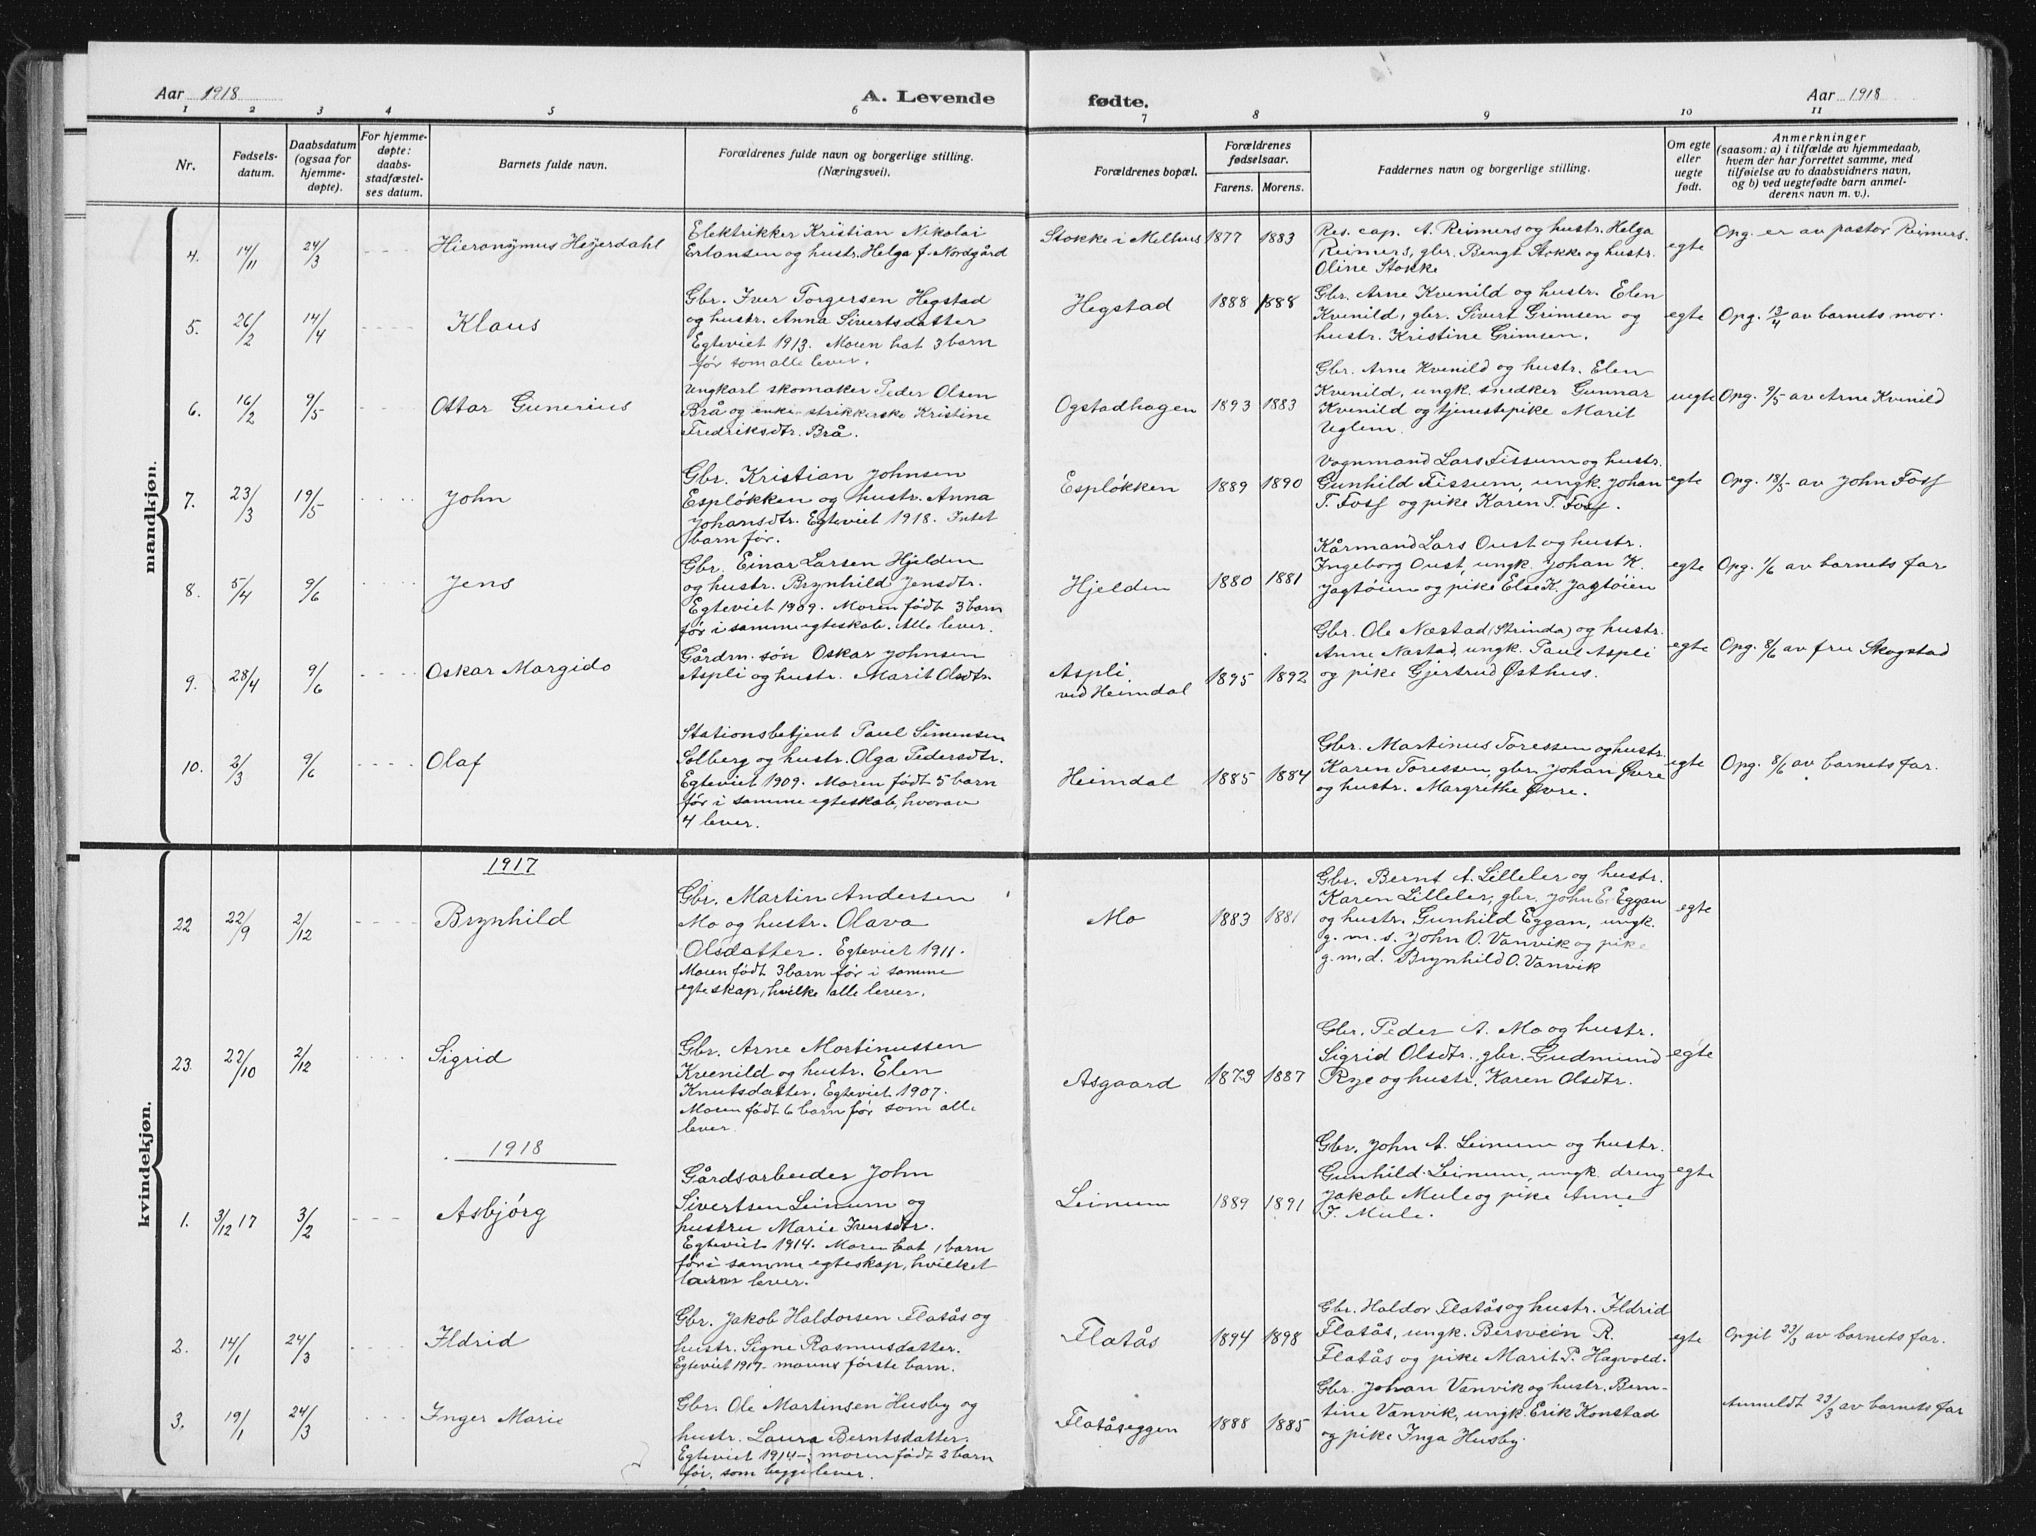 Aar 1918
A. Levende
fødte.
Aar 1918
1 2 3 4 5 6 7 8 9 10 11
Nr.
Fødsels-
datum.
Daabsdatum
(ogsaa for
hjemme-
døpte).
For hjemme-
døpte:
daabs-
stadfæstel-
ses datum.
Barnets fulde navn.
Forældrenes fulde navn og borgerlige stilling.
(Næringsvei).
Forældrenes bopæl.
Forældrenes
fødselsaar.
Farens. Morens.
Faddernes navn og borgerlige stilling.
Om egte
eller
uegte
født.
Anmerkninger
(saasom: a) i tilfælde av hjemmedaab,
hvem der har forrettet samme, med
tilføielse av to daabsvidners navn,
og b) ved uegtefødte barn anmel-
derens navn m. v.).
mandkjøn.
4. 14/11 24/3
Hieronymus Heyerdahl
Elektrikker Kristian Nikolai
Erlansen og hustr. Helga f. Nordgård
Stokke i Melhus 1877 1883
Res. cap. A. Reimers og hustr. Helga
Reimers, gbr. Bengt Stokke og hustr.
Oline Stokke
egte
Opg. er av pastor Reimers.
5. 26/2 14/4
Klaus
Gbr. Iver Torgersen Hegstad
og hustr. Anna Sivertsdatter
Egteviet 1913. Moren hat 3 barn
før som alle lever.
Hegstad 1888 1888
Gbr. Arne Kvenild og hustr. Elen
Kvenild, gbr. Sivert Grimsen og
hustr. Kristine Grimsen.
egte
Opg. 13/4 av barnets mor.
6. 16/2 9/5
Ottar Gunerius
Ungkarl skomaker Peder Olsen
Brå og enke strikkerske Kristine
Fredriksdtr. Brå.
Ogstadhagen 1893 1883
Gbr. Arne Kvenild og hustr. Elen
Kvenild, ungk. snedker Gunnar
Kvenild og tjenestepike Marit
Uglem.
uegte
Opg. 9/5 av Arne Kvinild
7. 23/3 19/5
John
Gbr. Kristian Johnsen
Espløkken og hustr. Anna
Johansdtr. Egteviet 1918. Intet
barn før.
Espløkken 1889 1890
Vognmand Lars Tissum og hustr.
Gunhild Tissum, ungk. Johan
T. Foss og pike Karen T. Foss.
egte
Opg. 18/5 av John Foss
8. 5/4 9/6
Jens
Gbr. Einar Larsen Hjelden
og hustr. Brynhild Jensdtr.
Egteviet 1909. Moren født 3 barn
før i samme egteskab. Alle lever.
Hjelden 1880 1881
Kårmand Lars Oust og hustr.
Ingeborg Oust, ungk. Johan K.
Jagtøien og pike Else K. Jagtøien
egte
Opg. 1/6 av barnets far
9. 28/4 9/6
Oskar Margido
Gårdm. søn Oskar Johnsen
Aspli og hustr. Marit Olsdtr.
Aspli,
ved Heimdal
1895 1892
Gbr. Ole Næstad (Strinda) og hustr.
Anne Næstad, ungk. Paul Aspli
og pike Gjertrud Østhus.
egte
Opg. 8/6 av fru Skogstad
10. 2/3 9/6
Olaf
Stationsbetjent Paul Simensen
Solberg og hustr. Olga Pedersdtr.
Egteviet 1909. Moren født 5 barn
før i samme egteskab, hvorav
4 lever.
Heimdal 1885 1884
Gbr. Martinus Toressen og hustr.
Karen Toressen, gbr. Johan Øvre
og hustr. Margrethe Øvre.
egte
Opg. 8/6 av barnets far.
kvindekjøn.
1917
22 22/9 2/12
Brynhild
Gbr. Martin Andersen
Mo og hustr. Olava
Olsdatter. Egteviet 1911.
Moren født 3 barn før i samme
egteskap, hvilke alle lever.
Mo 1883 1881
Gbr. Bernt A. Lilleler og hustr.
Karen Lilleler, gbr. John E. Eggan
og hustr. Gunhild Eggan, ungk.
g. m. s. John O. Vanvik og pike
g. m. d. Brynhild O. Vanvik
egte
23. 22/10 2/12
Sigrid
Gbr. Arne Martinussen
Kvenild og hustr. Elen
Knutsdatter. Egteviet 1907.
Moren født 6 barn før som alle
lever.
Asgaard 1873 1887
Gbr. Peder A. Mo og hustr.
Sigrid Olsdtr. gbr. Gudmund
Rye og hustr. Karen Olsdtr.
egte
1918
1. 3/12 17 3/2
Asbjørg
Gårdsarbeider John
Sivertsen Leinum og
hustru Marie Iversdtr.
Egteviet 1914. Moren hat 1 barn
før i samme egteskap, hvilket
barn lever.
Leinum 1889 1891
Gbr. John A. Leinum og hustr.
Gunhild Leinum, ungk. dreng
Jakob Mule og pike Anne
F. Mule.
egte
2. 14/1 24/3
Ildrid
Gbr. Jakob Haldorsen Flatås og
hustr. Signe Rasmusdatter.
Egteviet 1917. morens første barn.
Flatås 1894 1898
Gbr. Haldor Flatås og hustr. Ildrid
Flatås, ungk. Bersvein R.
Flatås og pike Marit P. Hagvold.
egte
Opgit 23/3 av barnets far.
3. 19/1 24/3
Inger Marie
Gbr. Ole Martinsen Husby og
hustr. Laura Berntsdatter.
Egteviet 1914 – moren født 2 barn
før, som begge lever.
Flatåseggen 1888 1885
Gbr. Johan Vanvik og hustr. Bern-
tine Vanvik, ungk. Erik Konstad
og pike Inga Husby.
Anmeldt 23/3 av barnets far